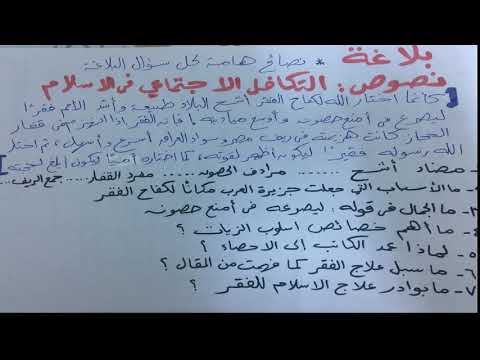 بلاغة * نصائح هامة لحل سؤال البلاغة
نصوص: التكافل الاجتماعي في الاسلام
[كأنما اختار الله لكفاح الفقر أشح البلاد طبيعة وأشد الأمم فقرًا
ليصرع في أمنع حصونه وأوسع ميادينه؛ فإن الفقر إذا انهزم في قفار
الحجاز كانت هزيمته في ريف مصر وسواد العراق أسرع وأسهل، ثم اختار
الله رسوله فقيرًا ليكون أظهر لقوته، كما اختاره أميًا ليكون أبلغ لحجته]
١- مضاد أشح ...... مرادف الحصون...... مفرد القفار....... جمع الريف....
٢- ما الأسباب التي جعلت جزيرة العرب مكانًا لكفاح الفقر
٣- ما الجمال في قوله: ليصرعه في أمنع حصونه
٤- ما أهم خصائص اسلوب الزيات ؟
٥- لماذا عمد الكاتب إلى الاحصاء ؟
٦- ما سبل علاج الفقر كما فهمت من المقال ؟
٧- ما بوادر علاج الاسلام للفقر ؟